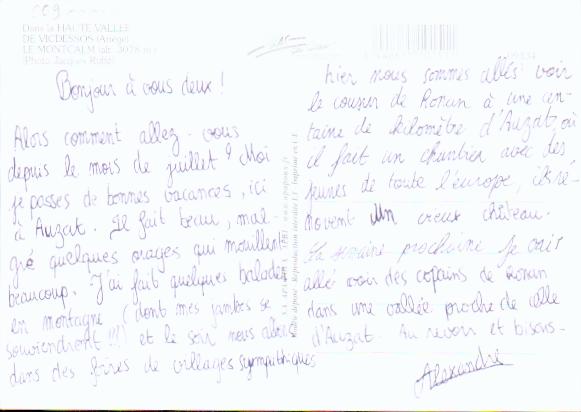 009
Dans la HAUTE VALLEE
DE VICDESSOS (Ariège)
LE MONTCALM (alt. 3078 m.)
(Photo Jacques Ruffié)
Bonjour à vous deux !
Alors comment allez-vous
depuis le mois de juillet ? Moi
je passes de bonnes vacances, ici
à Auzat. Il fait beau, mal-
gré quelques orages qui mouillent
beaucoup. J'ai fait quelques balades
en montagne (dont mes jambes se
souviendront !!!) et le soir nous allons
dans des foires de villages sympathiques
hier nous sommes allés voir
le cousin de Ronan à une cen-
taine de kilomètre d'Auzat, où
il fait un chantier avec des
jeunes de toute l'europe, ils ré-
novent un vieux château.
La semaine prochaine je vais
allé voir des copains de Ronan
dans une vallée proche de celle
d'Auzat. Au revoir et bisous-
Alexandre